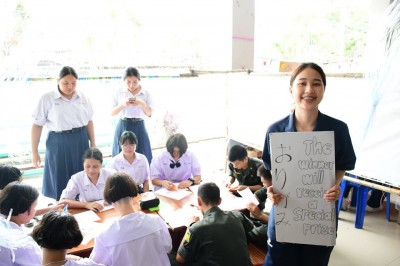 おりがみ
The
winner
will
receive
a
Special
Prize